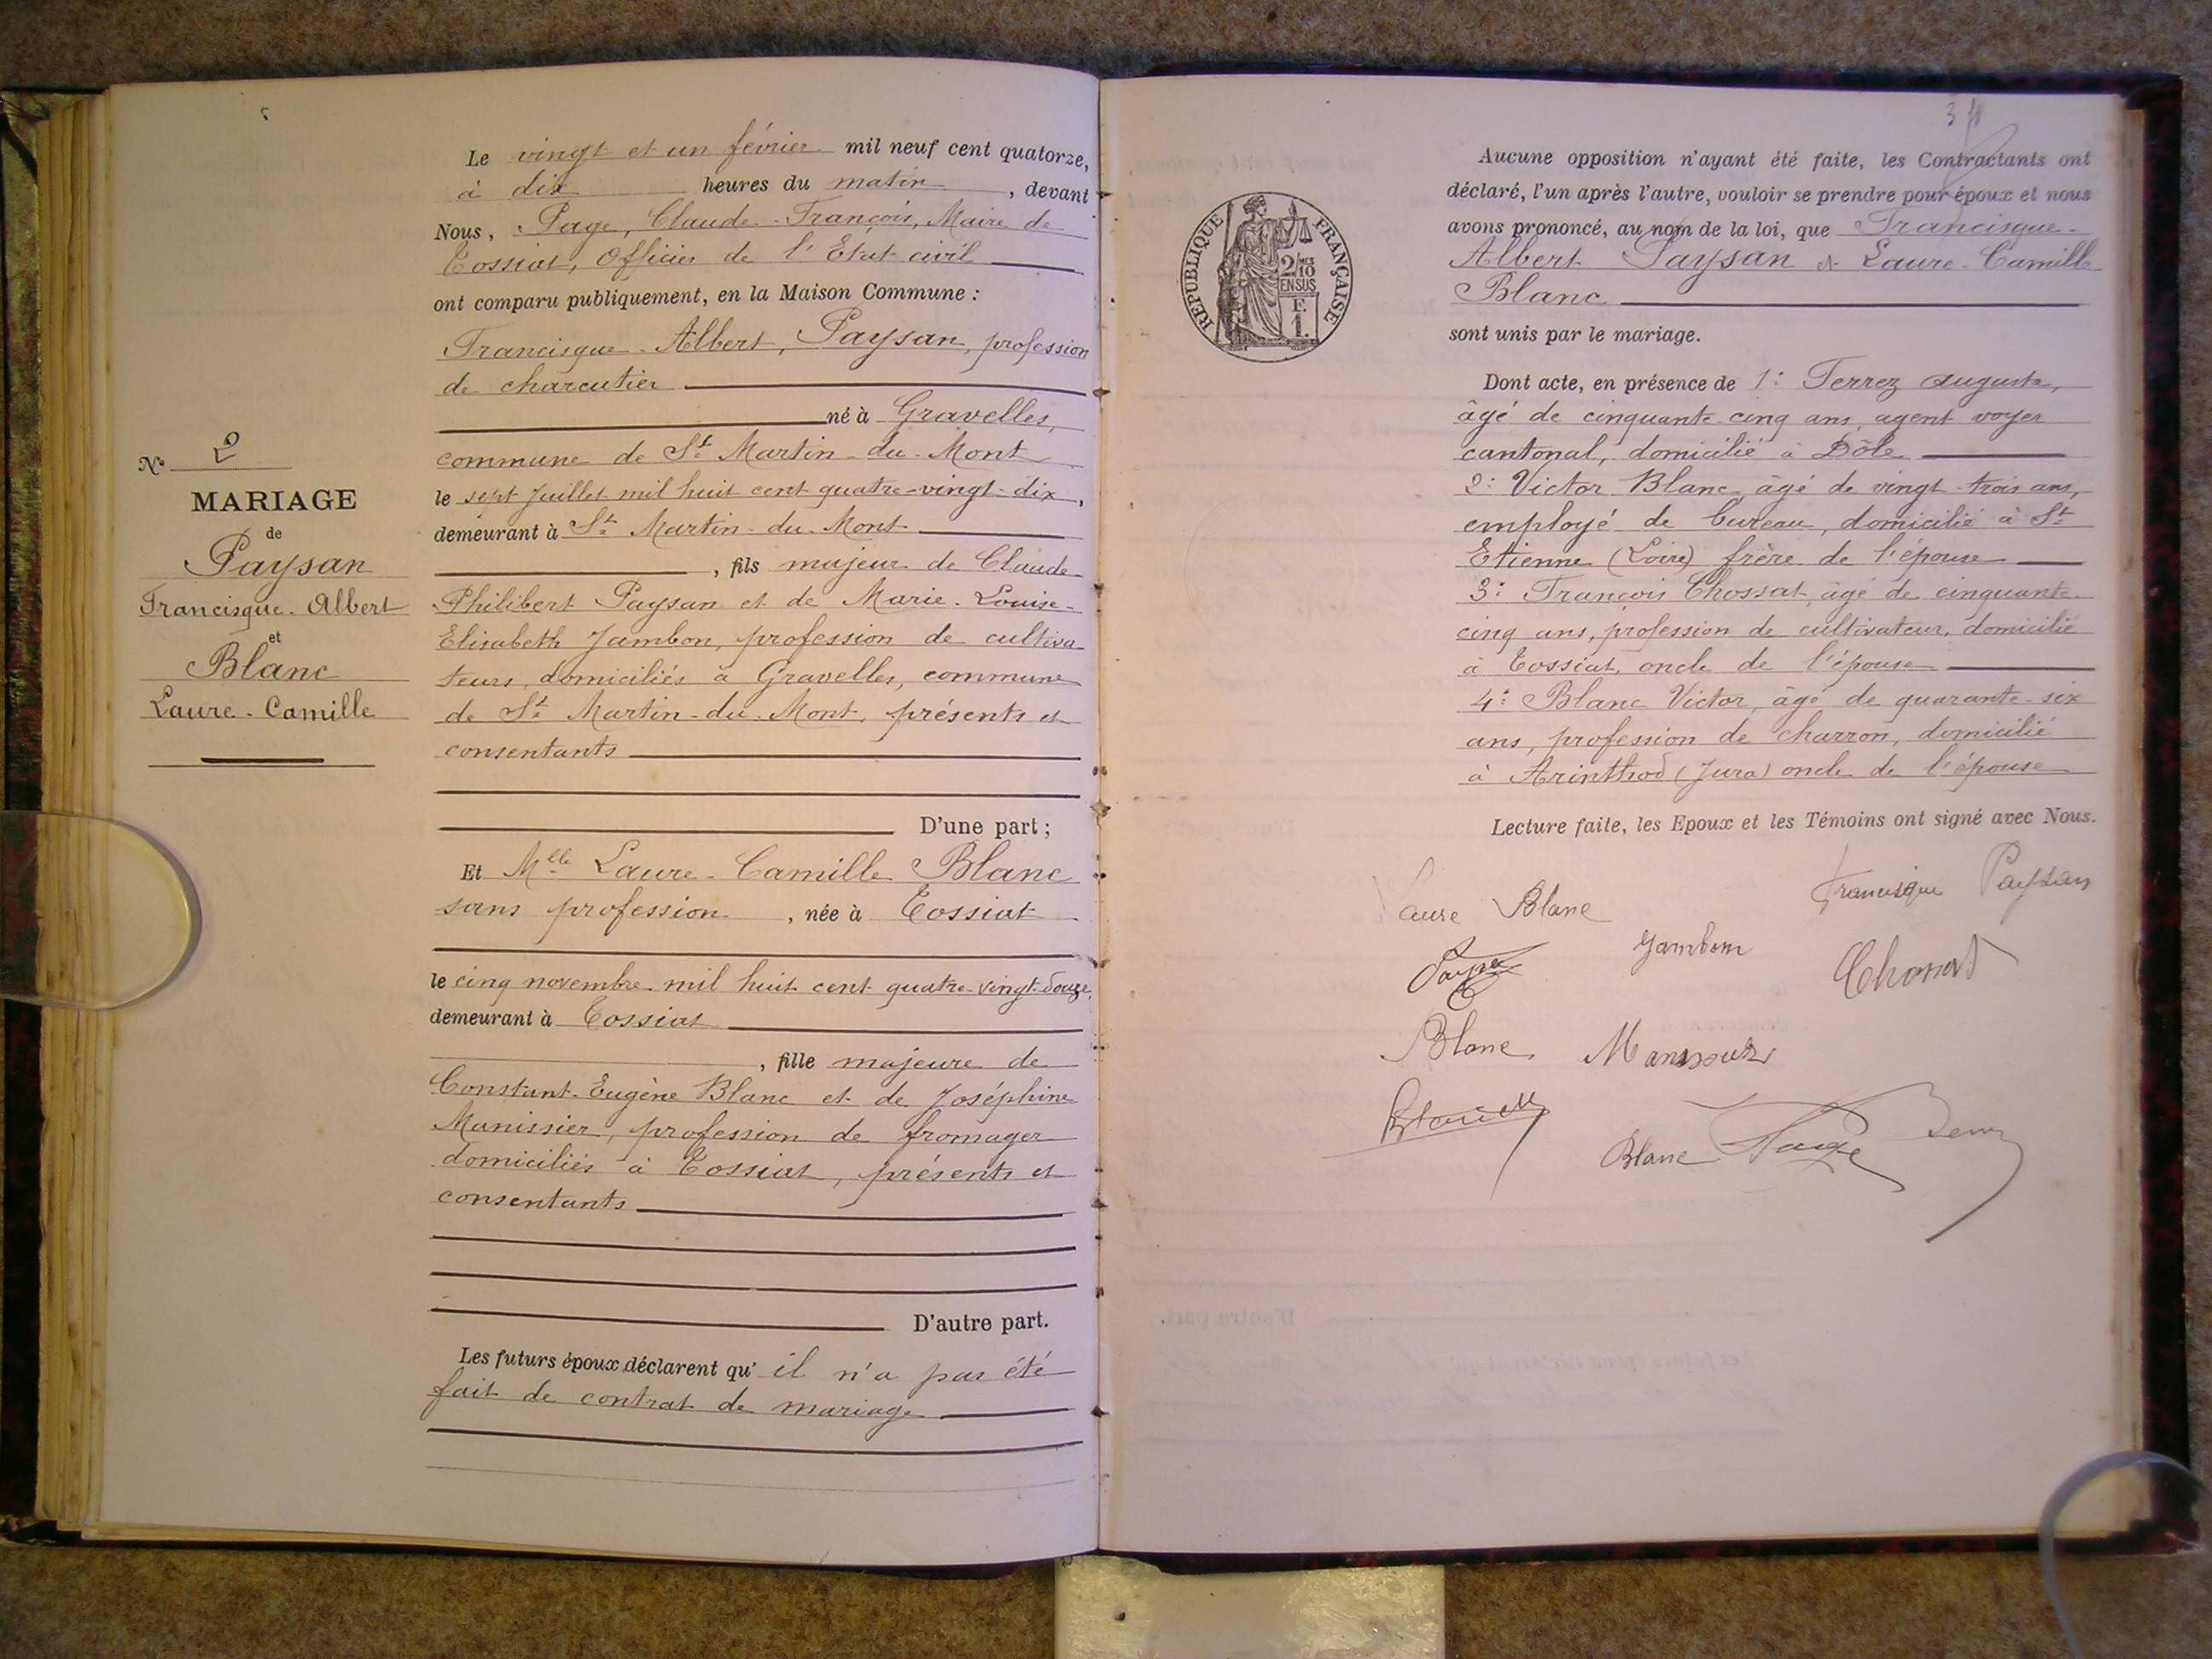 Le vingt et un février mil neuf cent quatorze,
à dix heures du matin, devant
Nous, Page, Claude-François, Maire de
Tossiat, Officier de l'Etat civil
ont comparu publiquement, en la Maison Commune :
Francisque-Albert, Paysan, profession
de charcutier
né à Gravelles,
commune de St Martin-du-Mont
le sept Juillet mil huit cent quatre-vingt-dix,
demeurant à St Martin-du-Mont
, fils majeur de Claude
Philibert Paysan et de Marie-Louise-
Elisabeth Jambon, profession de cultiva-
teurs, domiciliés à Gravelles, commune
de St Martin-du-Mont, présents et
consentants
D'une part ;
Et Mlle Laure-Camille Blanc
sans profession, née à Tossiat
le cinq novembre mil huit cent quatre-vingt-douze,
demeurant à Tossiat
, fille majeure de
Constant-Eugène Blanc et de Joséphine
Manissier, profession de fromager
domiciliés à Tossiat, présents et
consentants
D'autre part.
Les futurs époux déclarent qu'il n'a pas été
fait de contrat de mariage
No 2
MARIAGE
de
Paysan
Francisque-Albert
et
Blanc
Laure-Camille
RÉPUBLIQUE FRANÇAISE
2/10
EN SUS
F.
1.
Aucune opposition n'ayant été faite, les Contractants ont
déclaré, l'un après l'autre, vouloir se prendre pour époux et nous
avons prononcé, au nom de la loi, que Francisque-
Albert Paysan et Laure-Camille
Blanc
sont unis par le mariage.
Dont acte, en présence de 1: Terrez Auguste,
âgé de cinquante cinq ans, agent voyer
cantonal, domicilié à Dôle
2: Victor Blanc âgé de vingt-trois ans,
employé de bureau, domicilié à St
Etienne (Loire) frère de l'épouse
3: François Chossat, âgé de cinquante-
cinq ans, profession de cultivateur, domicilié
à Tossiat, oncle de l'épouse
4: Blanc Victor, âgé de quarante-six
ans, profession de charron, domicilié
à Arinthod (Jura) oncle de l'épouse
Lecture faite, les Epoux et les Témoins ont signé avec Nous.
Laure Blanc
Francisque Paysan
Jambon
Blanc
Blanc Page